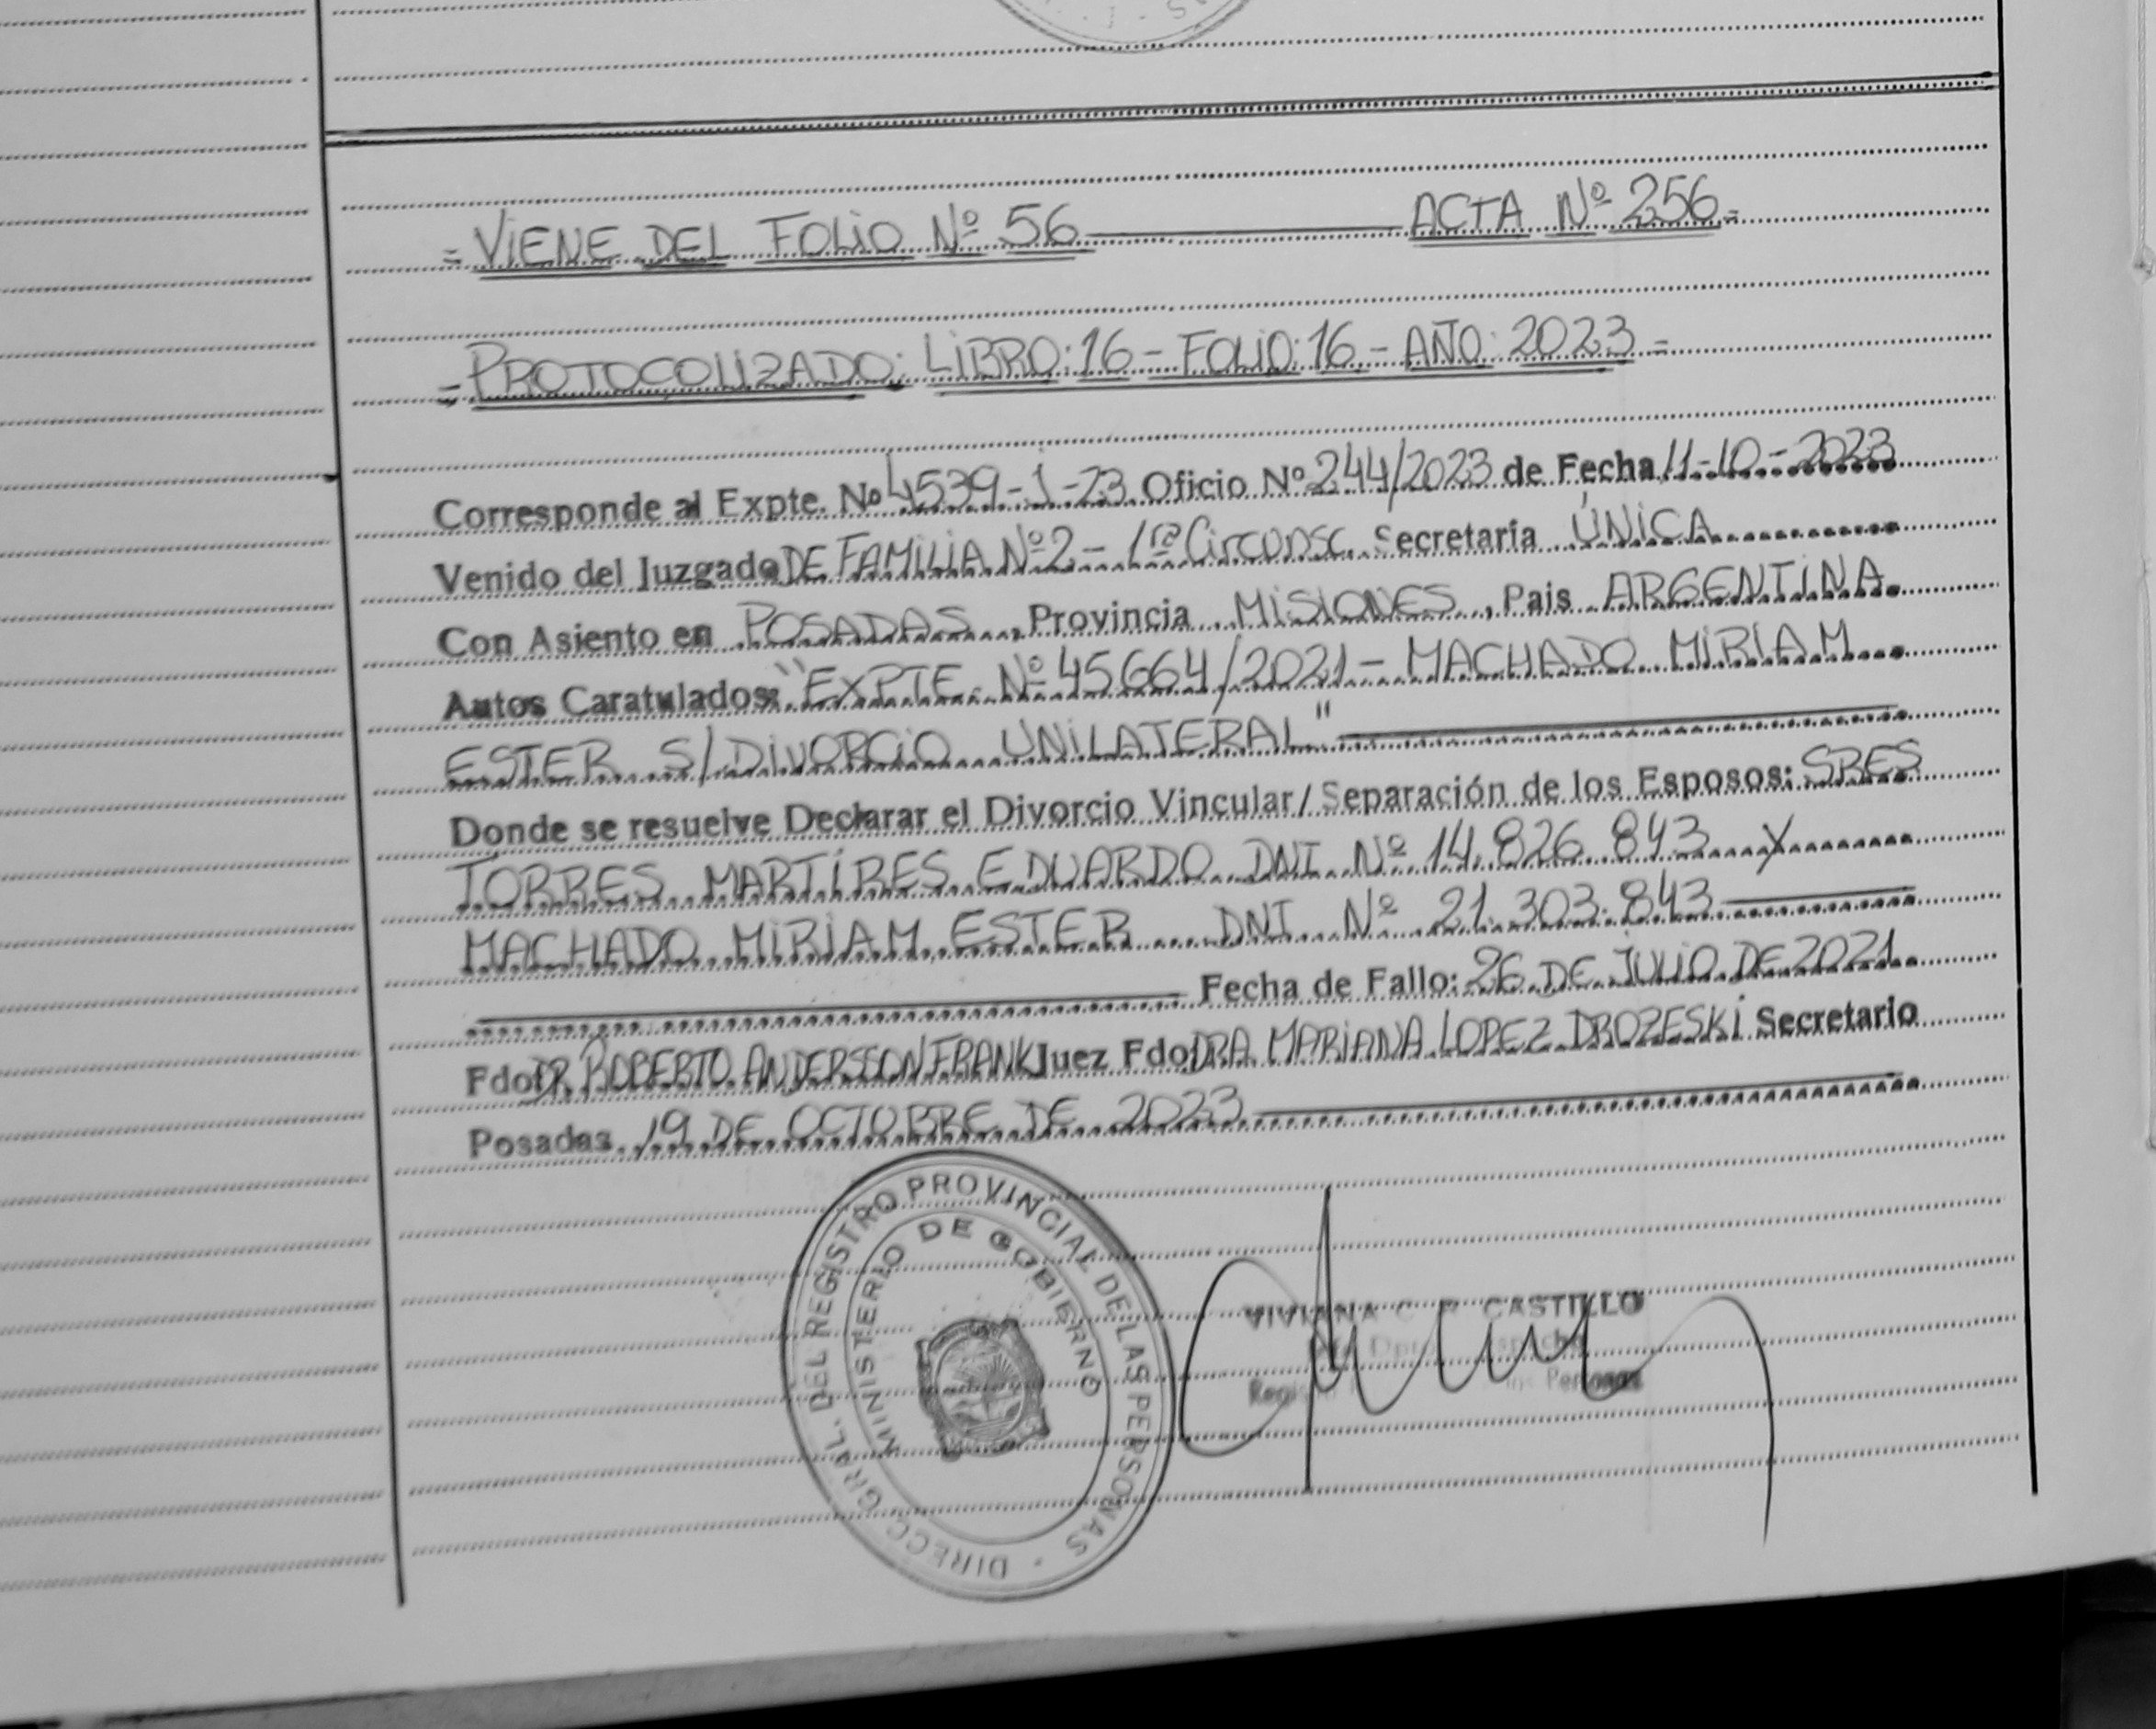 = VIENE DEL FOLIO Nº 56 ACTA Nº 256 =
= PROTOCOLIZADO: LIBRO: 16 - FOLIO: 16 - AÑO: 2023 =
Corresponde al Expte. Nº 4539-1-23 Oficio Nº 244/2023 de Fecha 11-10-2023
Venido del Juzgado DE FAMILIA Nº 2 - 1ra Circunsc. Secretaría ÚNICA
Con Asiento en POSADAS, Provincia MISIONES, Pais ARGENTINA
Autos Caratulados: "EXPTE. Nº 45664/2021 - MACHADO MIRIAM
ESTER S/DIVORCIO UNILATERAL"
Donde se resuelve Declarar el Divorcio Vincular/Separación de los Esposos: SRES
TORRES MARTIRES EDUARDO DNI Nº 14.826.843 Y
MACHADO MIRIAM ESTER DNI Nº 21.303.843
Fecha de Fallo: 26 DE JULIO DE 2021
Fdo DR. ROBERTO ANDERSSON FRANK Juez Fdo DRA. MARIANA LOPEZ DROZESKI Secretario
Posadas 19 DE OCTUBRE DE 2023
DIRECC. GRAL. DEL REGISTRO PROVINCIAL DE LAS PERSONAS
MINISTERIO DE GOBIERNO
VIVIANA C CASTILLO